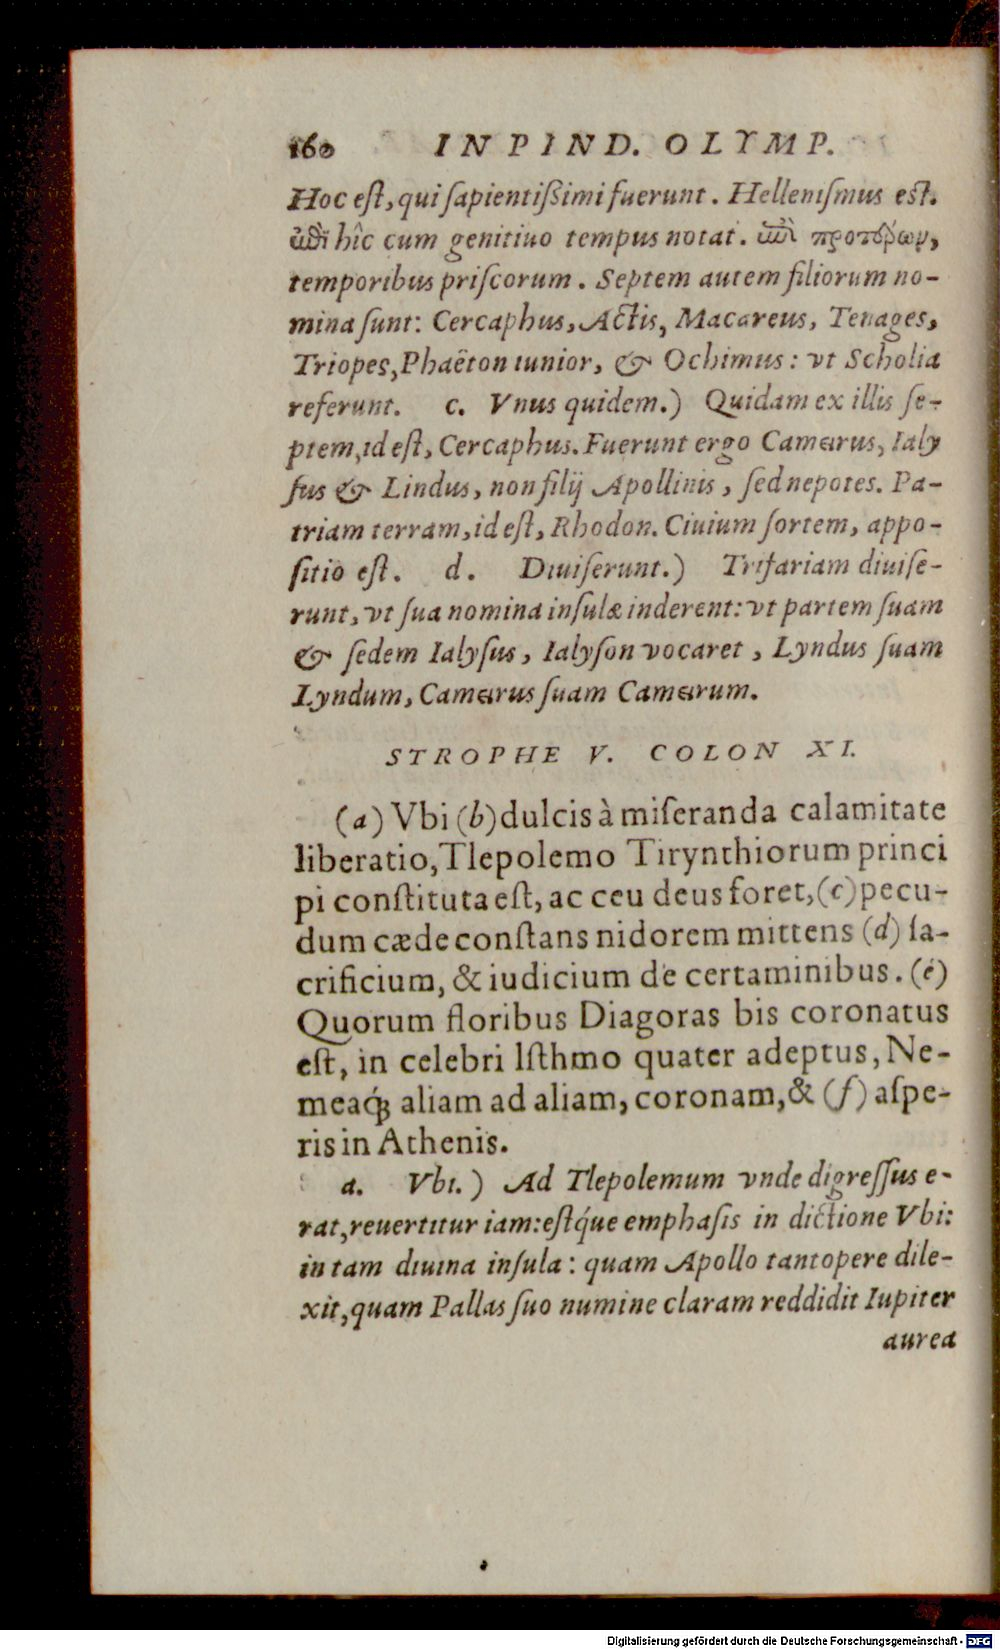 160 IN PIND. OLYMP.
Hoc eſt, qui ſapientißimi fuerunt. Helleniſmus eſt.
ἐπὶ hîc cum genitiuo tempus notat. ἐπὶ προτέρων,
temporibus priſcorum. Septem autem filiorum no-
mina ſunt: Cercaphus, Actis, Macareus, Tenages,
Triopes, Phaëton iunior, & Ochimus: vt Scholia
referunt. c. Vnus quidem.) Quidam ex illis ſe-
ptem, id eſt, Cercaphus. Fuerunt ergo Camærus, Ialy
ſus & Lindus, non filij Apollinis, ſed nepotes. Pa-
triam terram, id eſt, Rhodon. Ciuium ſortem, appo-
ſitio eſt. d. Diuiſerunt.) Trifariam diuiſe-
runt, vt ſua nomina inſulæ inderent: vt partem ſuam
& ſedem Ialyſus, Ialyſon vocaret, Lyndus ſuam
Lyndum, Camærus ſuam Camærum.
STROPHE V. COLON XI.
(a) Vbi (b) dulcis à miſeranda calamitate
liberatio, Tlepolemo Tirynthiorum princi
pi conſtituta eſt, ac ceu deus foret, (c) pecu-
dum cæde conſtans nidorem mittens (d) ſa-
crificium, & iudicium de certaminibus. (e)
Quorum floribus Diagoras bis coronatus
eſt, in celebri Iſthmo quater adeptus, Ne-
meaq́ꝫ aliam ad aliam, coronam, & (f) aſpe-
ris in Athenis.
a. Vbi.) Ad Tlepolemum vnde digreſſus e-
rat, reuertitur iam: eſtq́ue emphaſis in dictione Vbi:
in tam diuina inſula: quam Apollo tantopere dile-
xit, quam Pallas ſuo numine claram reddidit Iupiter
aurea
Digitalisierung gefördert durch die Deutsche Forschungsgemeinschaft - DFG